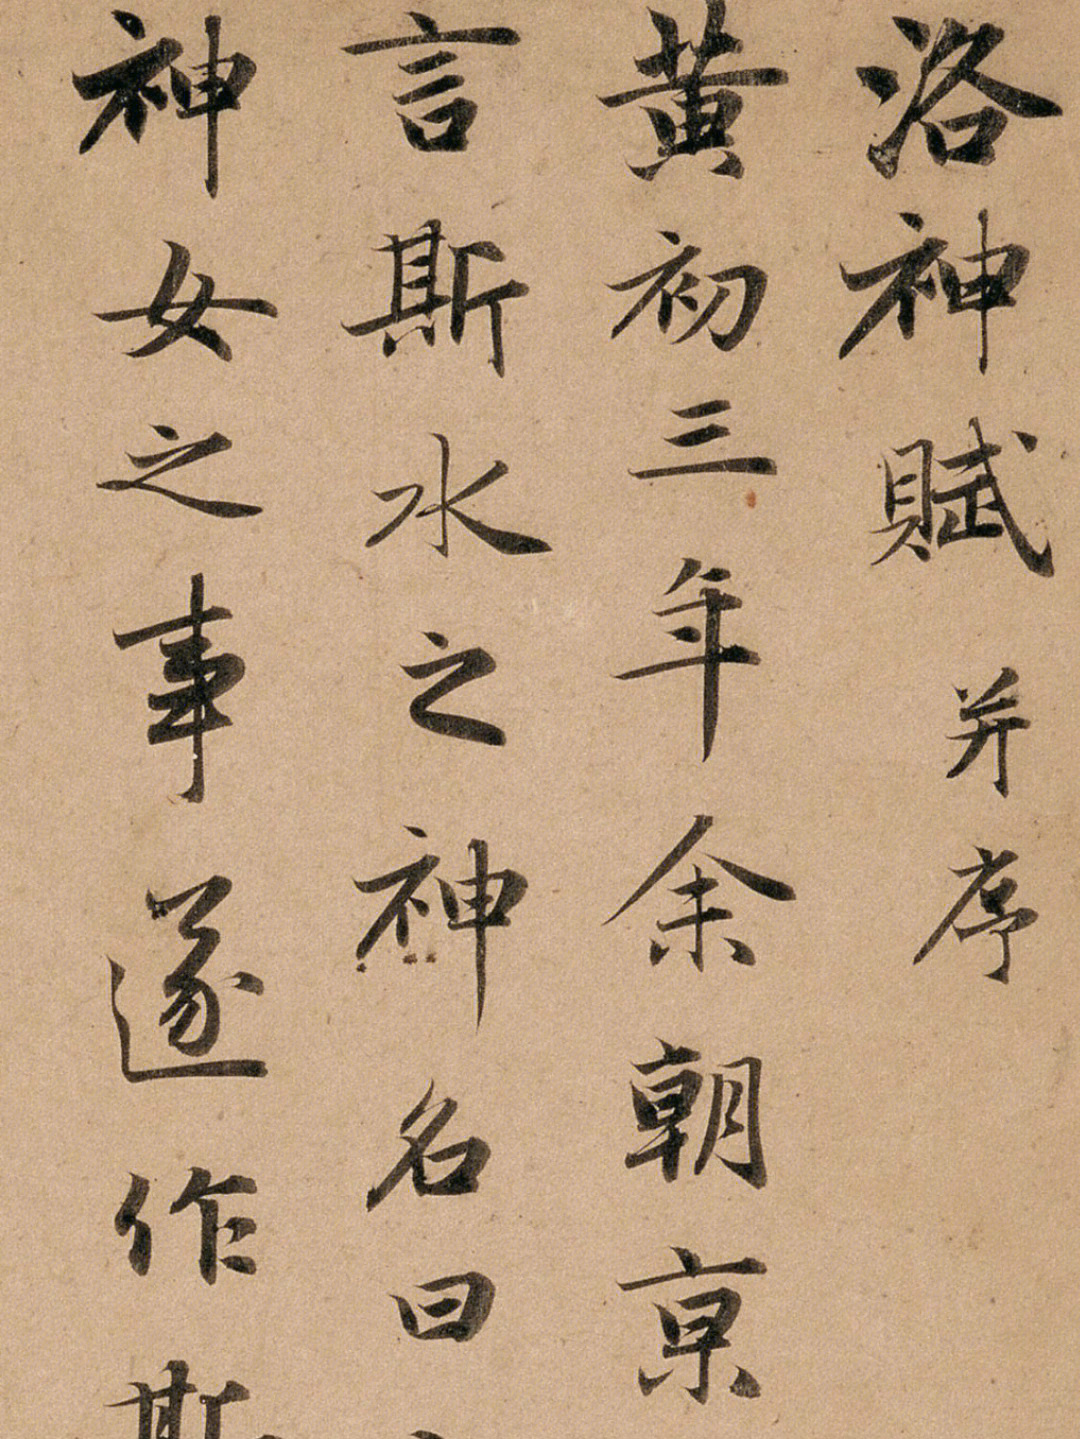 洛神賦并序
黄初三年余朝京
言斯水之神名曰
神女之事遂作斯